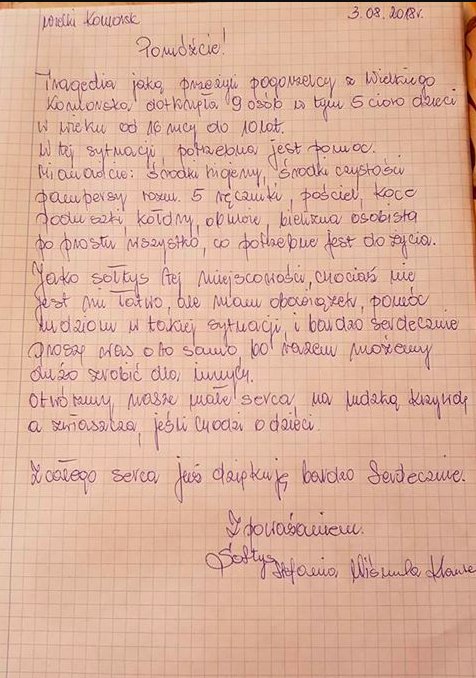 Wielki Komorsk 3.08.2018r.
Pomóżcie!
Tragedia jaką przeżyli pogorzelcy z Wielkiego
Komorska dotknęła 9 osób w tym 5 cioro dzieci
w wieku od 16 mcy do 10 lat.
W tej sytuacji potrzebna jest pomoc.
Mianowicie: środki higieny, środki czystości
pampersy rozm. 5 ręczniki, pościel, koce
poduszki, kołdry, obuwie, bielizna osobista
po prostu wszystko, co potrzebne jest do życia.
Jako sołtys tej miejscowości, chociaż nie
jest mi łatwo, ale mam obowiązek, pomóc
ludziom w takiej sytuacji, i bardzo serdecznie
proszę was o to samo, bo razem możemy
dużo zrobić dla innych.
Otwórzmy nasze małe serca na ludzką krzywdę
a zwłaszcza, jeśli chodzi o dzieci.
Z całego serca już dziękuję bardzo serdecznie.
Z poważaniem.
Sołtys Stefania